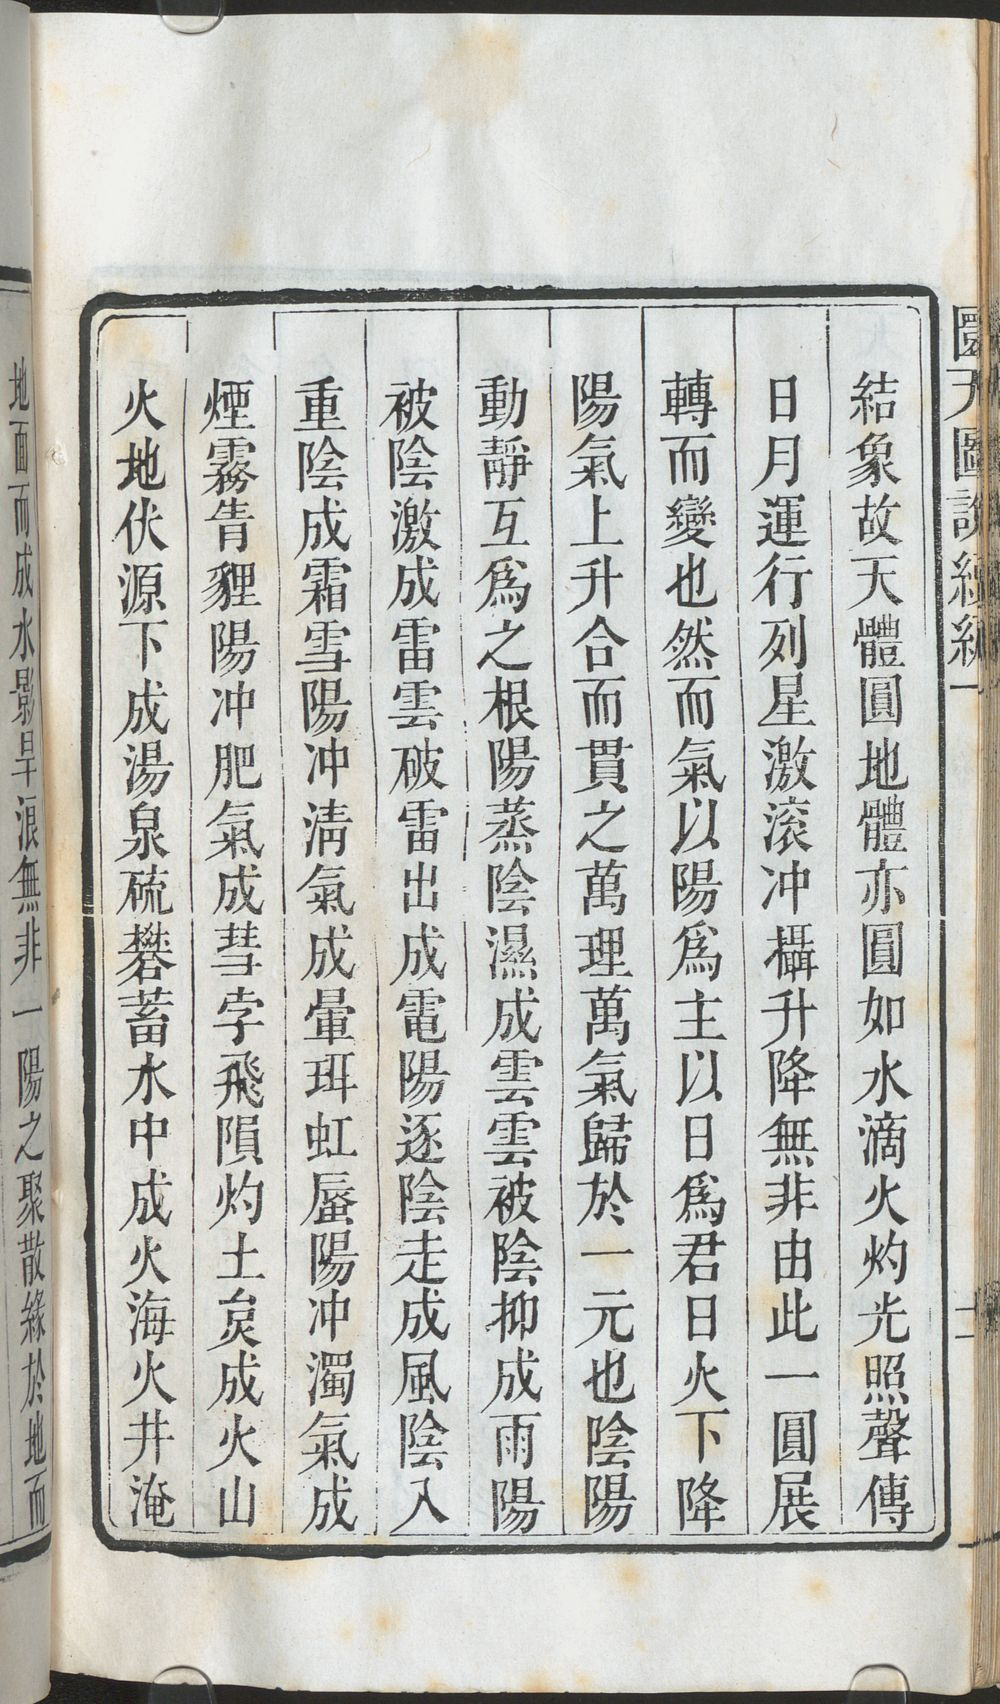 圜天圖說續編一
結象故天體圓地體亦圓如水滴火灼光照聲傳
日月運行列星激滾冲攝升降無非由此一圓展
轉而變也然而氣以陽爲主以日爲君日火下降
陽氣上升合而貫之萬理萬氣歸於一元也陰陽
動靜互爲之根陽蒸陰濕成雲雲被陰抑成雨陽
被陰激成雷雲破雷出成電陽逐陰走成風陰入
重陰成霜雪陽冲清氣成暈珥虹蜃陽冲濁氣成
煙霧眚貍陽冲肥氣成彗孛飛隕灼土炱成火山
火地伏源下成湯泉硫礬蓄水中成火海火井淹
地面而成水影旱浪無非一陽之聚散緣於地而